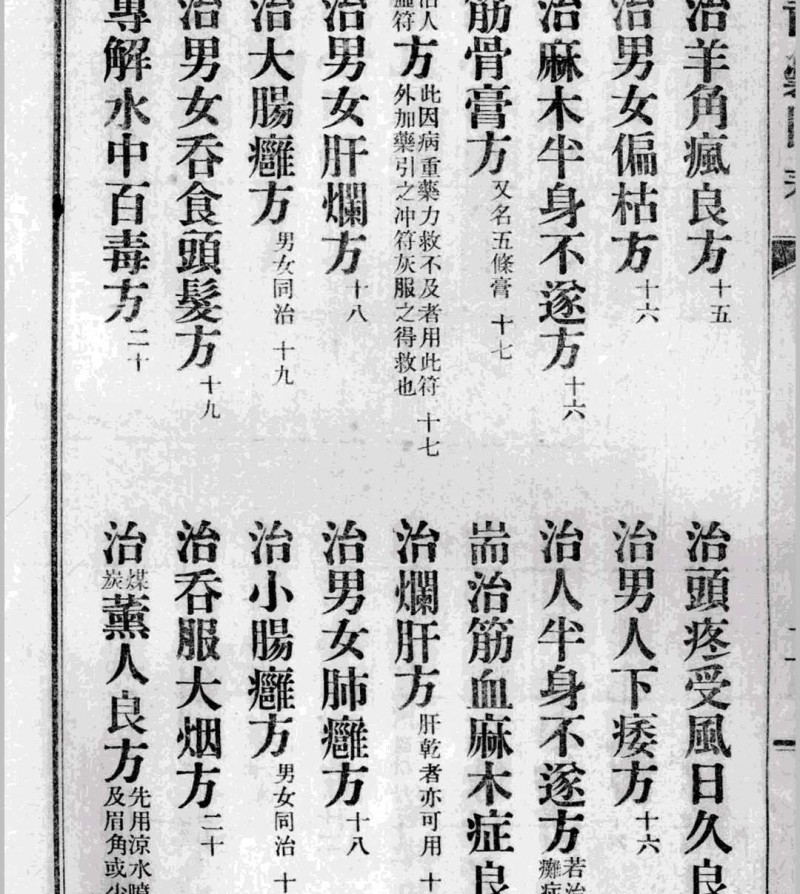 治羊角瘋良方 十五
治頭疼受風日久良
治男女偏枯方 十六
治男人下痿方 十六
治麻木半身不遂方 十六
治人半身不遂方 若治
癱症
筋骨膏方 又名五條膏 十七
耑治筋血麻木症良
治人
符
方 此因病重藥力救不及者用此符
外加藥引之冲符灰服之得救也 十七
治爛肝方 肝乾者亦可用 十
治男女肝爛方 十八
治男女肺癰方 十八
治大腸癰方 男女同治 十九
治小腸癰方 男女同治 十
治男女吞食頭髮方 十九
治吞服大烟方 二十
專解水中百毒方 二十
治煤
炭
薰人良方 先用涼水
及眉角或